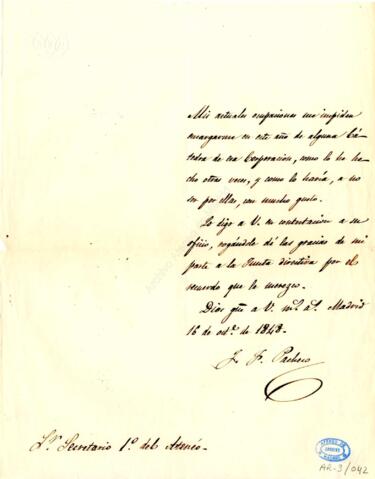 Mis actuales ocupaciones me impiden
encargarme en este año de alguna Cá-
tedra de esa Corporacion, como lo he he-
cho otras veces, y como lo haría, a no
ser por ellas, con mucho gusto.
Lo digo a V. en contestacion a su
oficio, rogándole dé las gracias de mi
parte a la Junta directiva por el
recuerdo que le merezco.
Dios gue a V. ms. as. Madrid
16 de oct.e de 1848.
J. F. Pacheco
Sr. Secretario 1o. del Ateneo.
ATENEO DE
MADRID
AR-3/042